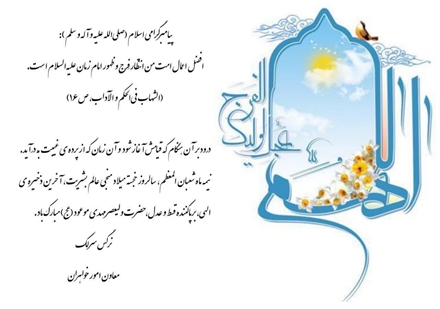 پیامبر گرامی اسلام (صلی الله علیه و آله و سلم):
افضل اعمال امت من انتظار فرج و ظهور امام زمان علیه السلام است.
(الشهاب فی الحکم و الآداب، ص ۱۶)
درود بر آن هنگام که قیامش آغاز شود و آن زمان که از پرده ی غیبت به در آید.
نیمه ماه شعبان المعظم، سالروز خجسته میلاد منجی عالم بشریت، آخرین ذخیره ی
الهی، برپا کننده قسط و عدل، حضرت ولیعصر مهدی موعود (عج) مبارک باد.
نرگس سرلک
معاون امور خواهران
اللهم
عجل لولیک
الفرج